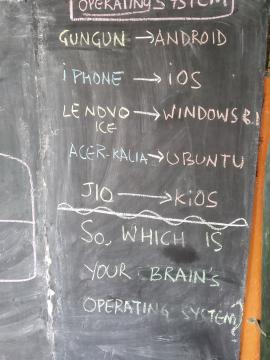 OPERATING SYSTEM
GUNGUN → ANDROID
iPHONE → iOS
LENOVO → WINDOWS 8.1
ICE
ACER-KALIA → UBUNTU
JIO → KiOS
SO, WHICH IS
YOUR BRAIN'S
OPERATING SYSTEM?